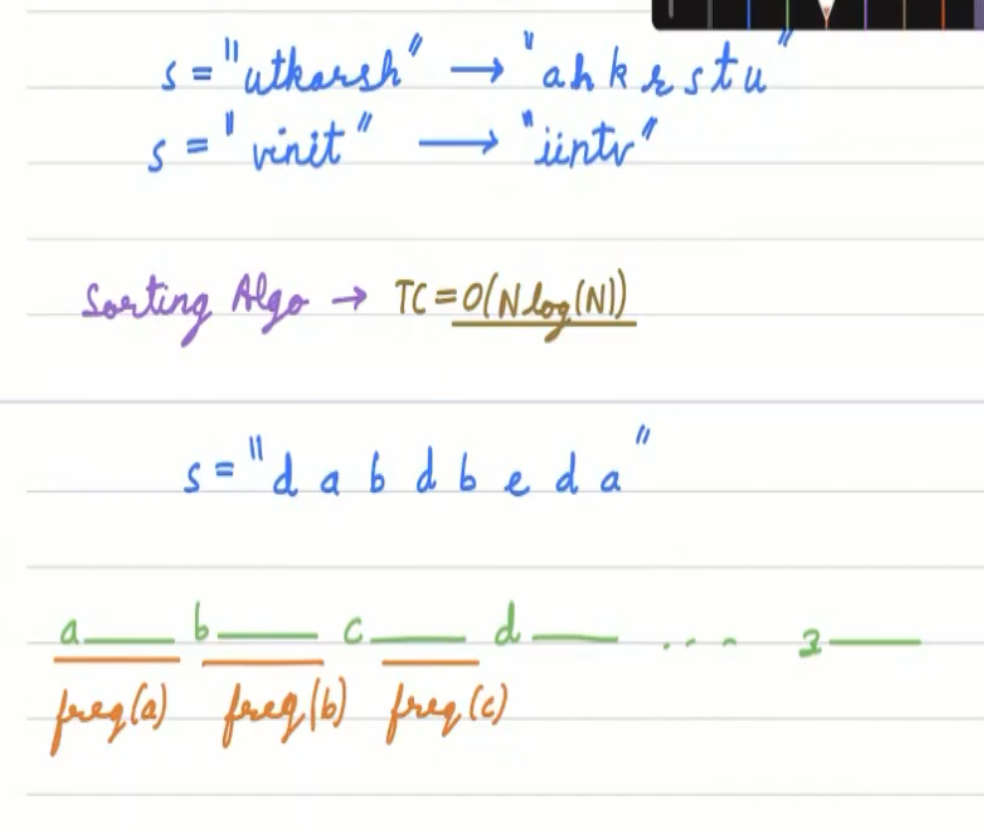 s = "utkarsh" → "ahkrstu"
s = "vinit" → "iintv"
Sorting Algo → TC = O(N log(N))
s = "d a b d b e d a"
a___ b___ c___ d___ . . - - z___
freq(a) freq(b) freq(c)